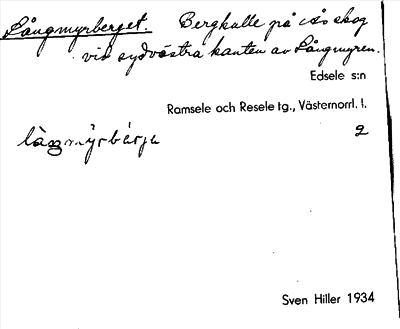 Långmyrberget. Bergkulle på skog
vid sydvästra kanten av Långmyren.
Edsele s:n
Ramsele och Resele tg., Västernorrl. l.
2
Sven Hiller 1934